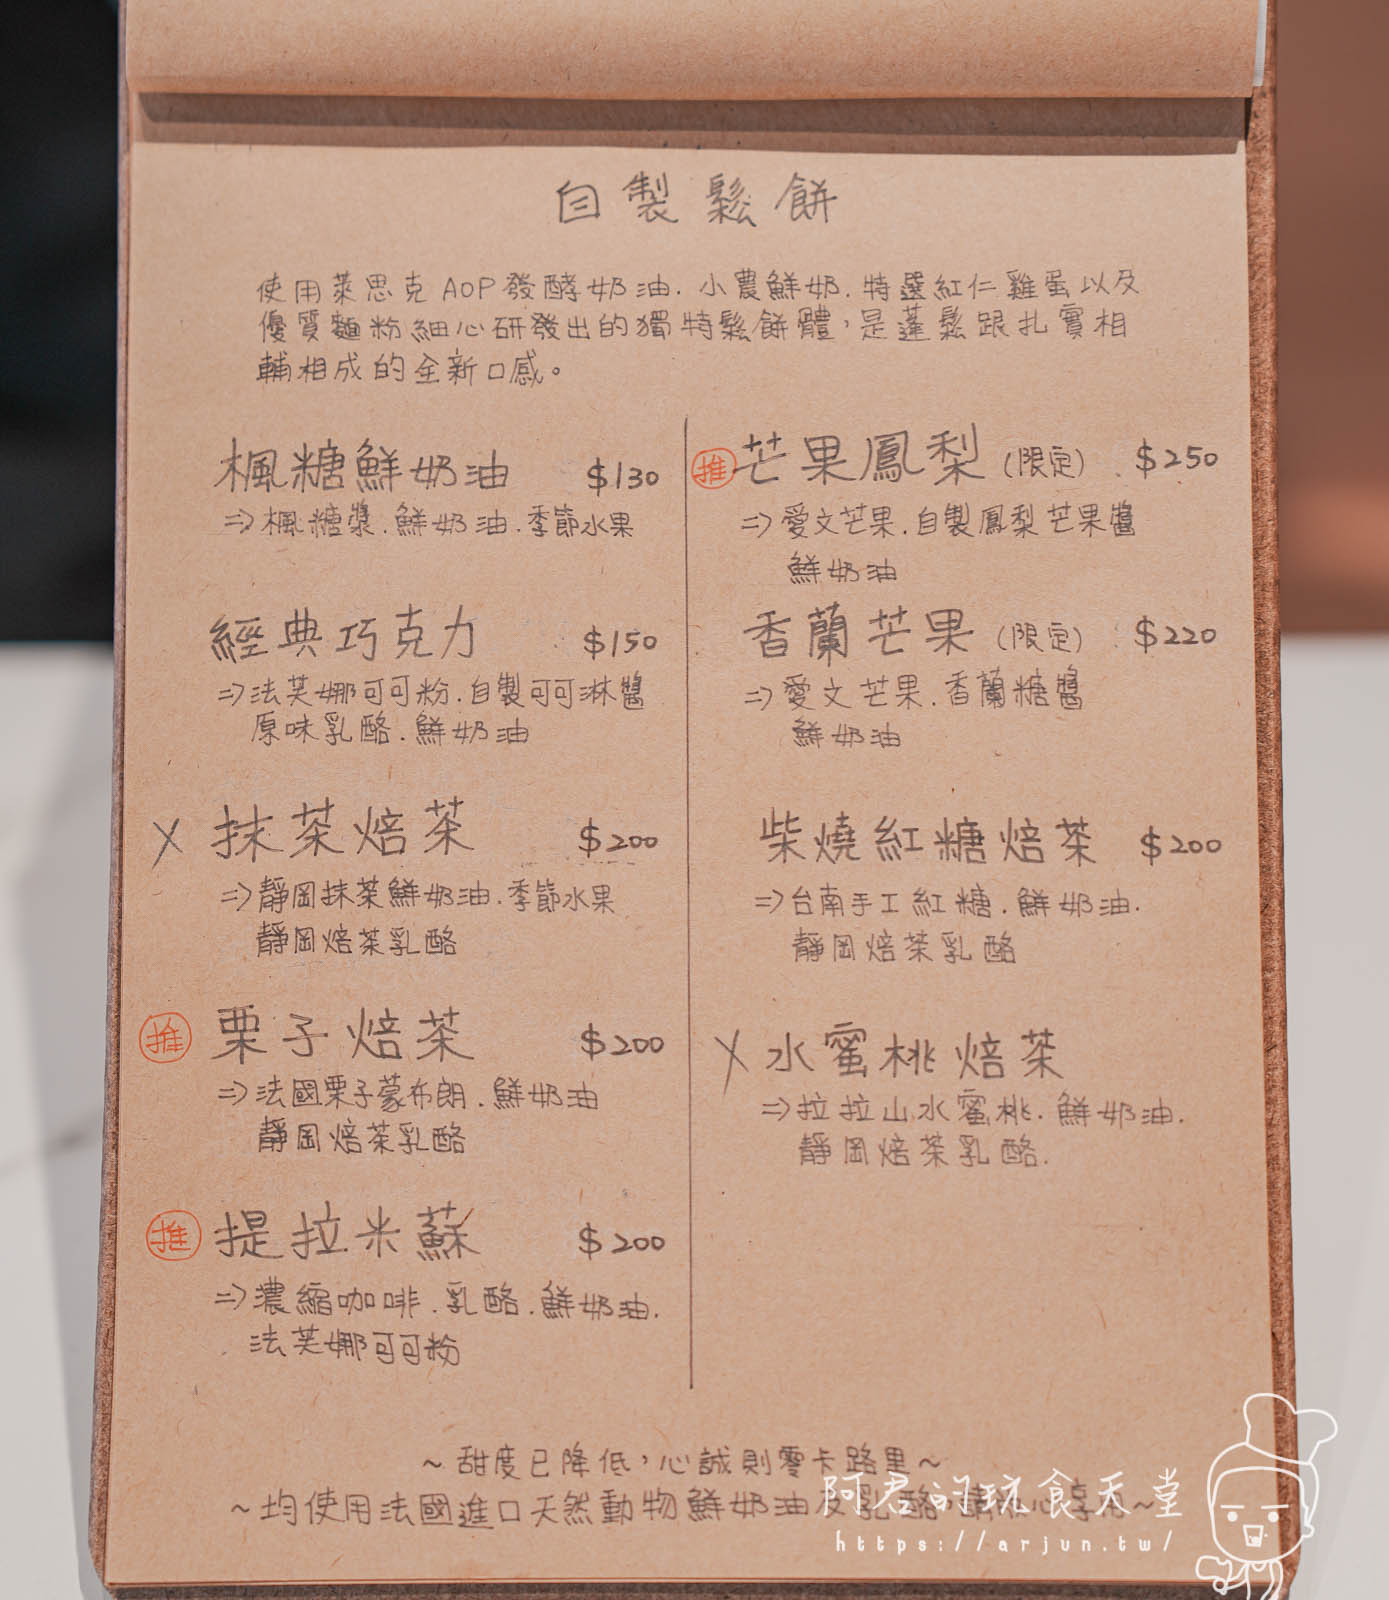 自製鬆餅
使用萊思克AOP發酵奶油.小農鮮奶.特選紅仁雞蛋以及
優質麵粉細心研發出的獨特鬆餅體，是蓬鬆跟扎實相
輔相成的全新口感。
楓糖鮮奶油 $130
=>楓糖漿.鮮奶油.季節水果
經典巧克力 $150
=>法芙娜可可粉.自製可可淋醬
原味乳酪.鮮奶油
X 抹茶焙茶 $200
=>靜岡抹茶鮮奶油.季節水果
靜岡焙茶乳酪
推 栗子焙茶 $200
=>法國栗子蒙布朗.鮮奶油
靜岡焙茶乳酪
推 提拉米蘇 $200
=>濃縮咖啡.乳酪.鮮奶油.
法芙娜可可粉
推 芒果鳳梨(限定) $250
=>愛文芒果.自製鳳梨芒果醬
鮮奶油
香蘭芒果(限定) $220
=>愛文芒果.香蘭糖醬
鮮奶油
柴燒紅糖焙茶 $200
=>台南手工紅糖.鮮奶油.
靜岡焙茶乳酪
X 水蜜桃焙茶
=>拉拉山水蜜桃.鮮奶油.
靜岡焙茶乳酪.
~甜度已降低，心誠則零卡路里~
~均使用法國進口天然動物鮮奶油及乳酪 請 心享 ~
阿君的玩食天堂
https://arjun.tw/